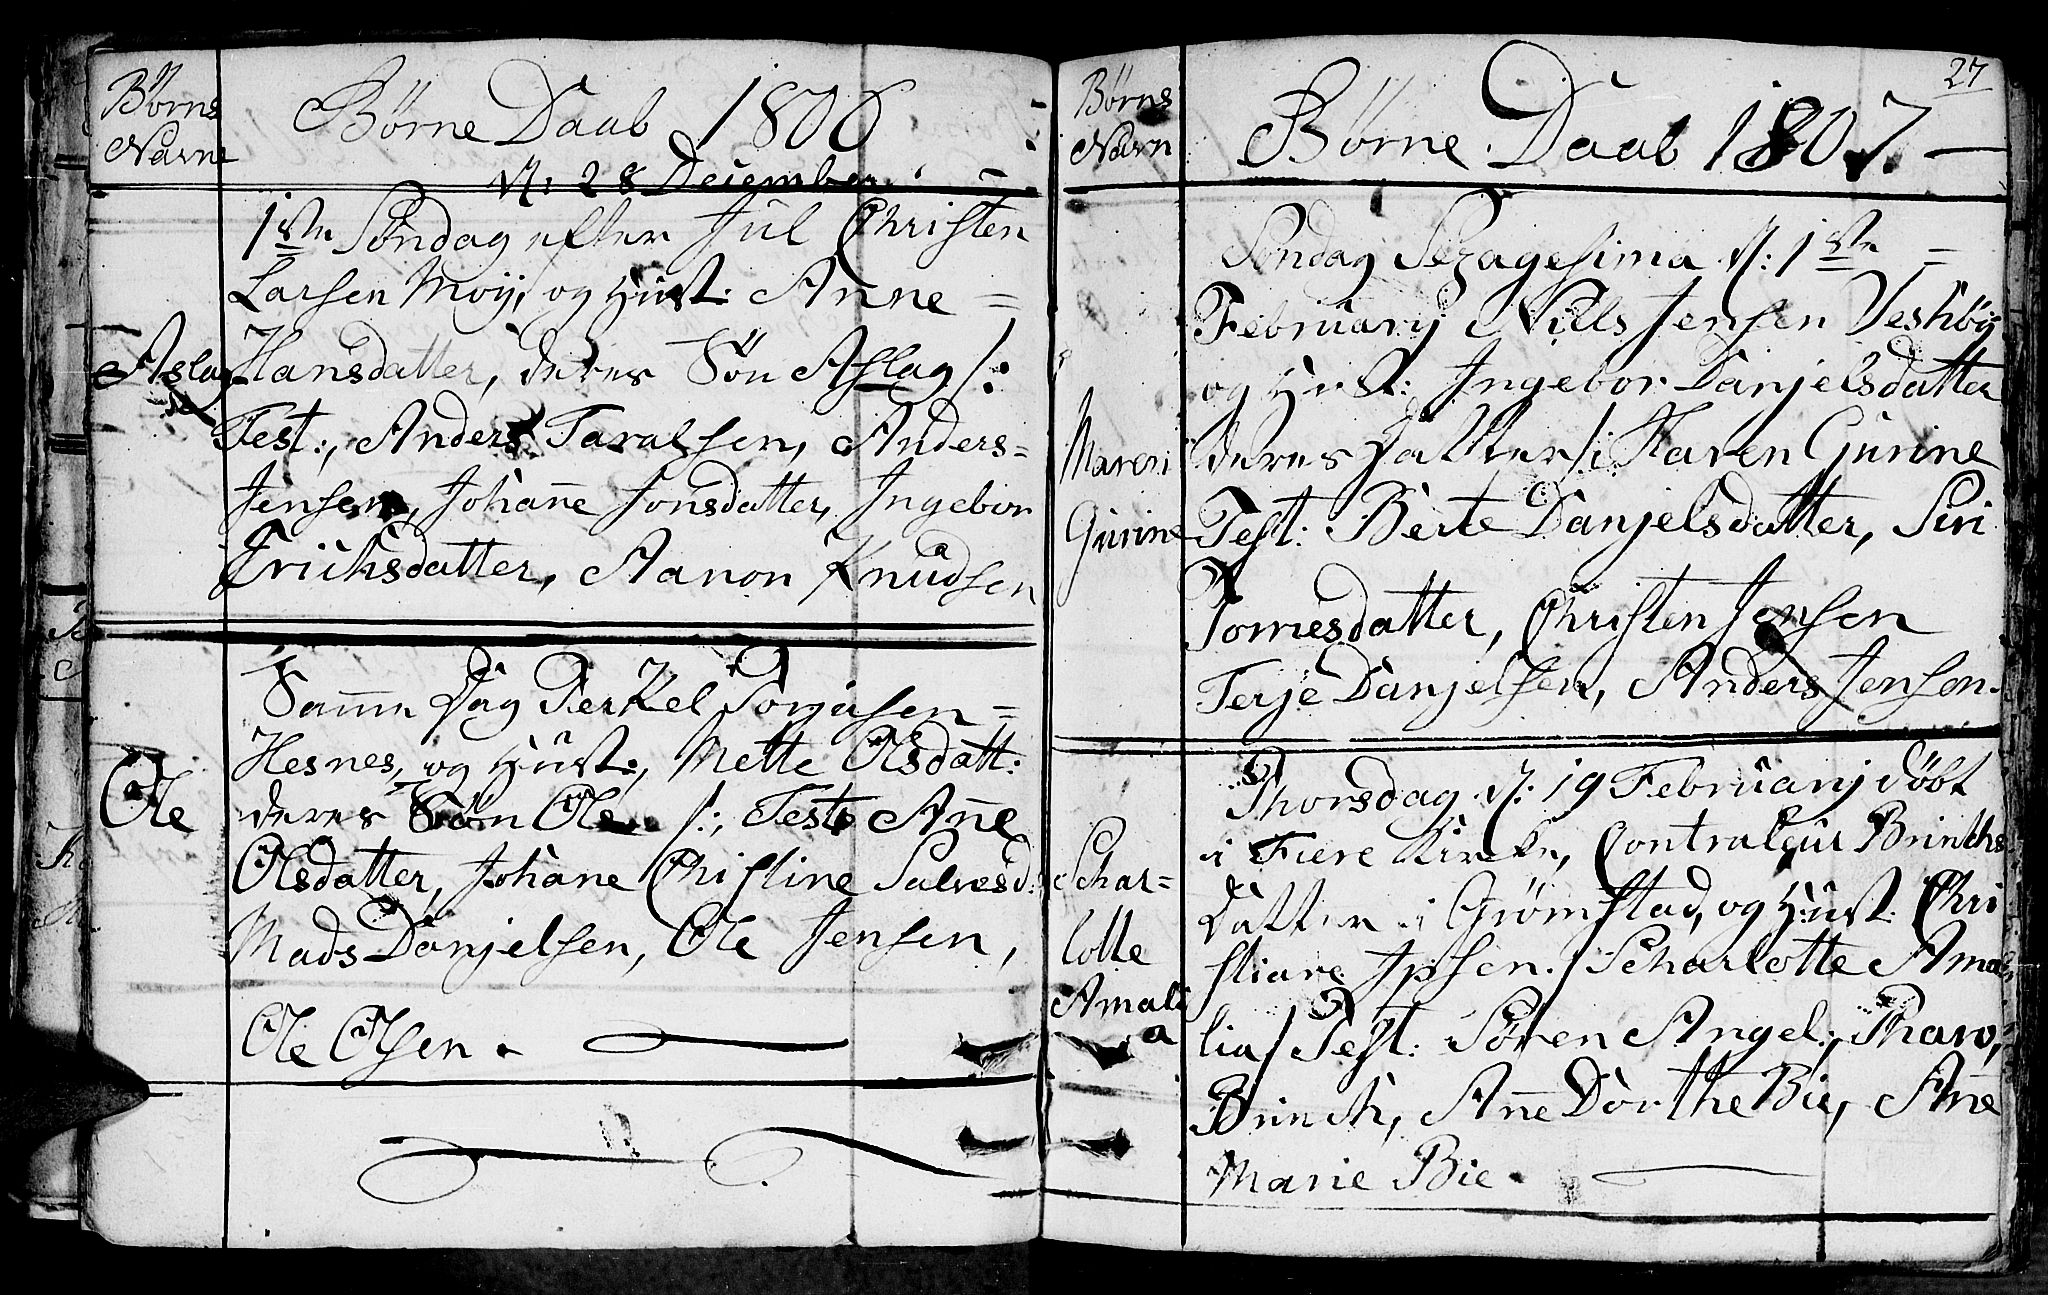 Børns
Navne
Børne Daab 1806
d: 28 Deiember.
1ste Søndag efter Jul Christen
Larsen Moy, og Hust: Anne =
Aslag
Hansdatter, deres Søn Aslag /:
Test:, Anders Taralsen, Anders=
Jensen, Johañe Jonsdatter, Ingebor
Erichsdatter, Aanon Knudsen
Sam̃e Dag Terkel Torjusen =
Hesnes, og Hust:, Mette Olsdatt:
Ole
deres Søn Ole /:, Test: Añe
Olsdatter, Johane Christine Salvesd:
Mads Danjelsen, Ole Jensen,
Ole Olsen.
27
Børns
Navn
Børne Daab 1807. —
Søndag Sexagesima d: 1ste =
February Nills Jensen Veshøy
og Hust: Ingebor Danjelsdatter
Maren
Gurine
deres Datter /: Maren Gurine
Test: Berte Danjelsdatter, Siri
Tomesdatter, Christen Jensen
Terje Danjelsen, Anders Jensen.
Thorsdag d: 19 February døbt
i Fiere Kirke, Contraleur Brinchs
Schar=
lotte
Amali
a
Datter i Grømstad, og Hust: Chri
stiane Ipsen. / Scharlotte Ama
lia / Test: Søren Angel:, Tharo,
Brinch, Añe Dorthe Bie, Añe
Marie Bie.